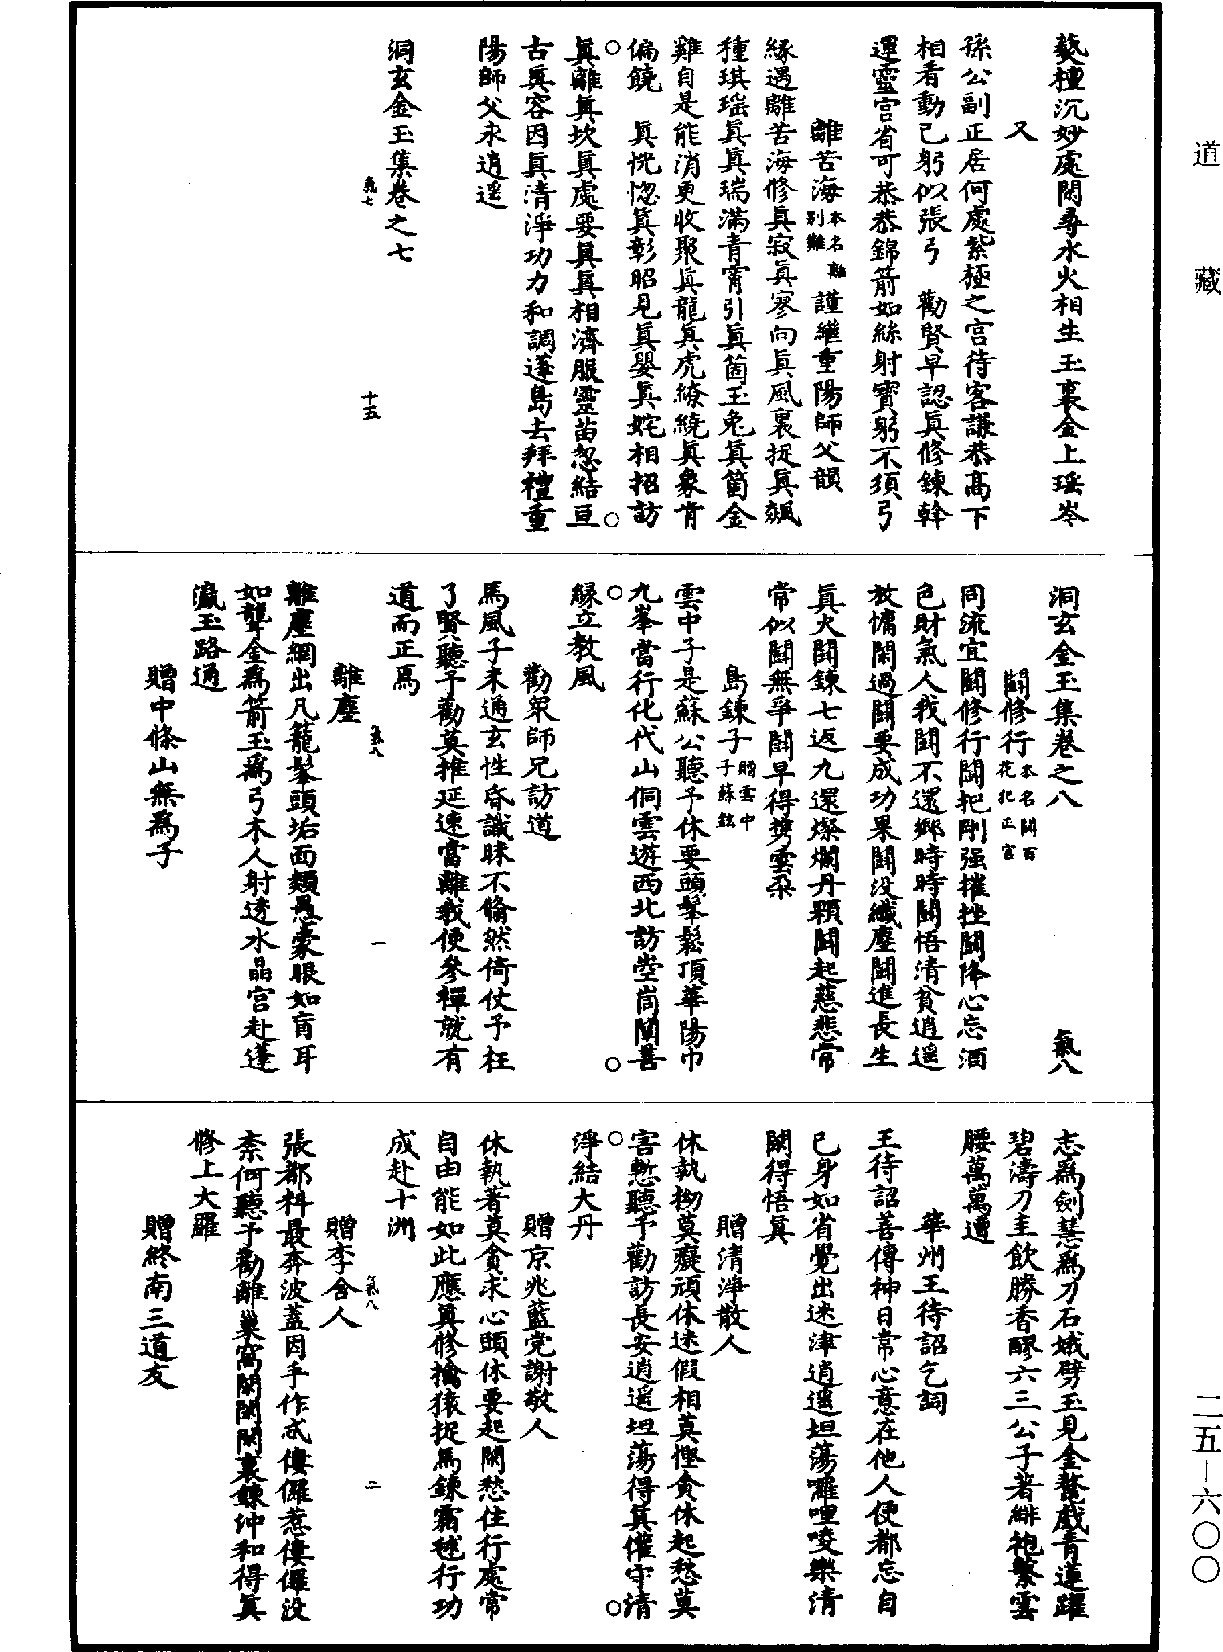 道藏
藝檀沉妙處閑尋水火相生玉裏金上瑶岑
又
孫公副正居何處紫極之宫待客謙恭高下
相看動已躬似張弓　勸賢早認眞修鍊斡
運靈宫省可恭恭錦箭如絲射寳躬不須弓
離苦海本名離別難　謹繼重陽師父韻
緣遇離苦海修眞寂眞寥向眞風裏捉眞飆
種琪瑶眞眞瑞滿青霄引眞箇玉兔眞箇金
雞自是能消更收聚眞龍眞虎繚繞眞象肯
偏饒　眞恍惚眞彰昭見眞嬰眞姹相招訪
○眞離眞坎眞處要眞眞相濟服靈苗忽結亘○
古眞容因眞清淨功力和調蓬島去拜禮重
陽師父永逍遥
洞玄金玉集卷之七
氣七　十五
洞玄金玉集卷之八　氣八
鬭修行本名鬭百花犯正宫
同流宜鬭修行鬭把剛强摧挫鬭降心忘酒
色財氣人我鬭不還鄉時時鬭悟清貧逍遥
放慵閑過鬭要成功果鬭没纖塵鬭進長生
眞火鬭鍊七返九還燦爛丹顆鬭起慈悲常
常似鬭無爭鬭早得携雲朶
島鍊子贈雲中子蘇鉉
雲中子是蘇公聽予休要頭髼鬆頂華陽巾
○九峯當行化代山侗雲遊西北訪崆峒闡善○
緣立教風
勸衆師兄訪道
馬風子未通玄性昏識昧不翛然倚仗予枉
了賢聽予勸莫推延速當離我便參禪就有
道而正焉
離塵
氣八　一
離塵網出凡籠髼頭垢面類愚蒙眼如盲耳
如聾金爲箭玉爲弓木人射透水晶宫赴蓬
瀛玉路通
贈中條山無爲子
志爲劍慧爲刀石娥劈玉見金鼇戲青蓮躍
碧濤刀圭飲勝香醪六三公子著緋袍繫雲
腰萬萬遭
華州王待詔乞詞
王待詔善傳神日常心意在他人便都忘自
已身如省覺出迷津逍遥坦蕩囉哩㖫樂清
閑得悟眞
贈清淨散人
休執拗莫癡頑休迷假相莫慳貪休起愁莫
○害慙聽予勸訪長安逍遥坦蕩得眞懽守清○
淨結大丹
贈京兆藍党謝敬人
休執著莫貪求心頭休要起閑愁住行處常
自由能如此應眞修擒猿捉馬鍊霜毬行功
成赴十洲
贈李舍人
氣八　二
張都料最奔波蓋因手作忒僂儸惹僂儸没
柰何聽予勸離巢窩閑閑閑裏鍊沖和得眞
修上大羅
贈終南三道友
二五—六〇〇